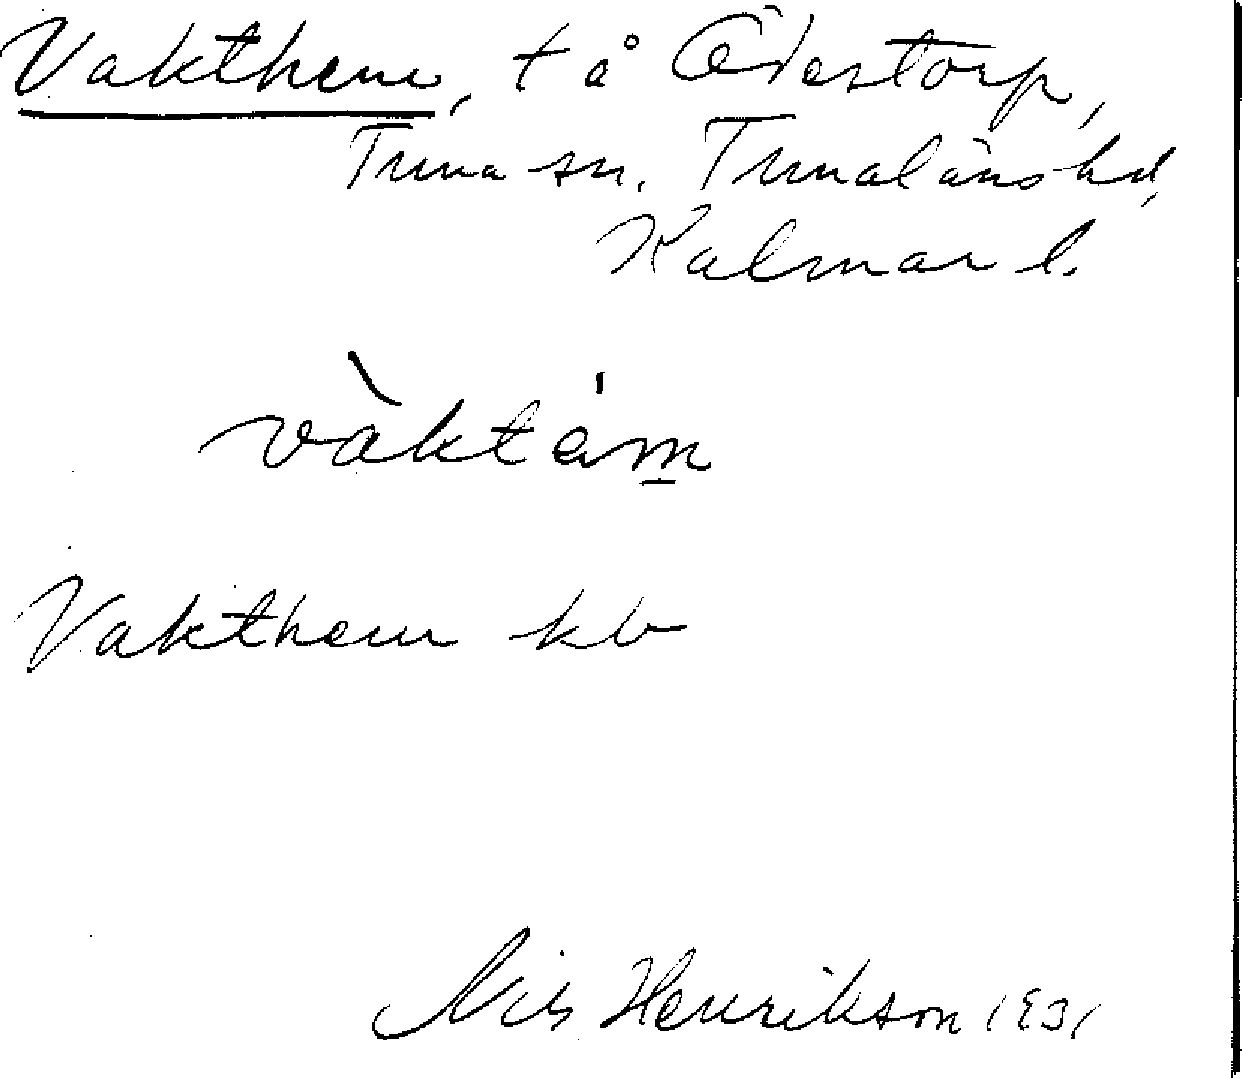 Vakthem, t å Ödestorp,
Tuna sn. Tunaläns hd,
Kalmar l.
vàktém
Vakthem kb
Nils Henrikson 1931